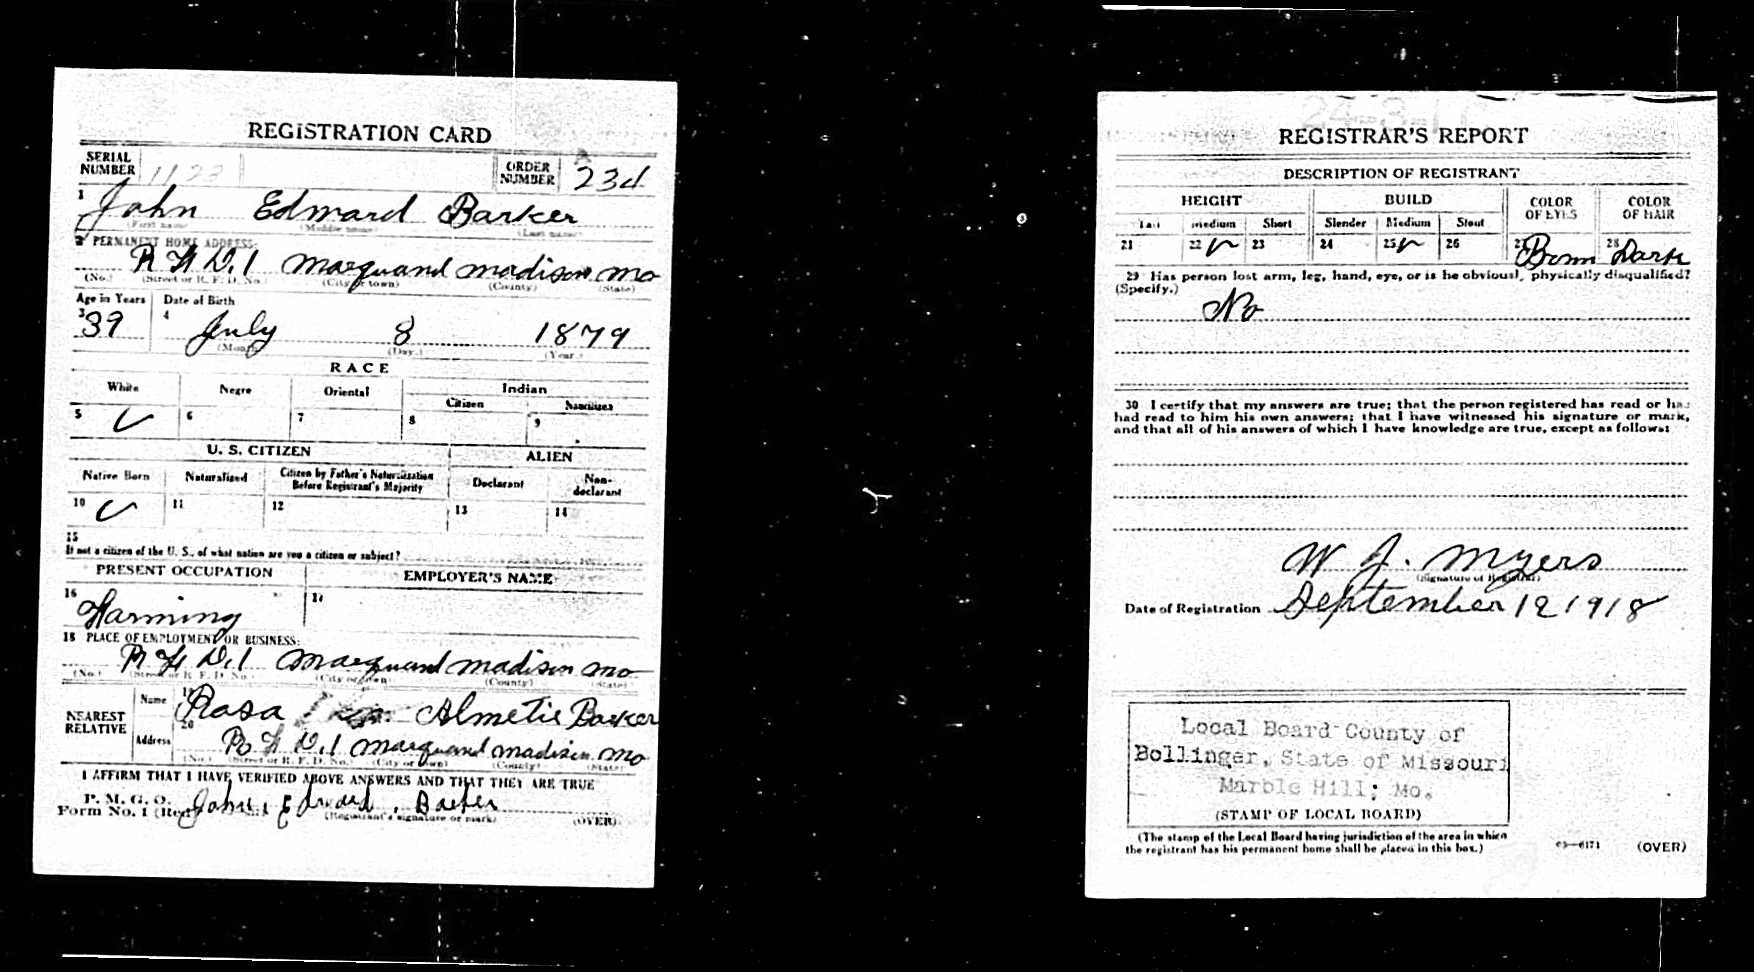 REGISTRATION CARD
SERIAL NUMBER 1123 ORDER NUMBER 234
1 John Edward Barker
(First name) (Middle name) (Last name)
2 PERMANENT HOME ADDRESS:
R F D. 1 Marquand Madison Mo
(No.) (Street or R. F. D. No.) (City or town) (County) (State)
Age in Years Date of Birth
3 39 4 July 8 1879
(Month) (Day.) (Year.)
RACE
White Negro Oriental Indian
Citizen Noncitizen
5 ✓ 6 7 8 9
U. S. CITIZEN ALIEN
Native Born Naturalized Citizen by Father's Naturalization Before Registrant's Majority Declarant Non-declarant
10 ✓ 11 12 13 14
15
If not a citizen of the U. S., of what nation are you a citizen or subject?
PRESENT OCCUPATION EMPLOYER'S NAME
16 Farming 17
18 PLACE OF EMPLOYMENT OR BUSINESS:
R F D. 1 Marquand Madison Mo
(No.) (Street or R. F. D. No.) (City or town) (County) (State)
NEAREST RELATIVE Name 19 Rosa Almetie Barker
Address 20 R F D. 1 Marquand Madison Mo
(No.) (Street or R. F. D. No.) (City or town) (County) (State)
I AFFIRM THAT I HAVE VERIFIED ABOVE ANSWERS AND THAT THEY ARE TRUE
P. M. G. O.
Form No. 1 (Red) John Edward Barker
(Registrant's signature or mark) (OVER)
REGISTRAR'S REPORT
DESCRIPTION OF REGISTRANT
HEIGHT BUILD COLOR OF EYES COLOR OF HAIR
Tall Medium Short Slender Medium Stout
21 22 ✓ 23 24 25 ✓ 26 27 Brown 28 Dark
29 Has person lost arm, leg, hand, eye, or is he obviously physically disqualified?
(Specify.)
No
30 I certify that my answers are true; that the person registered has read or has
had read to him his own answers; that I have witnessed his signature or mark,
and that all of his answers of which I have knowledge are true, except as follows:
W J. Myers
(Signature of Registrar)
Date of Registration September 12 1918
Local Board County of
Bollinger, State of Missouri
Marble Hill; Mo.
(STAMP OF LOCAL BOARD)
(The stamp of the Local Board having jurisdiction of the area in which
the registrant has his permanent home shall be placed in this box.)
03—6171 (OVER)